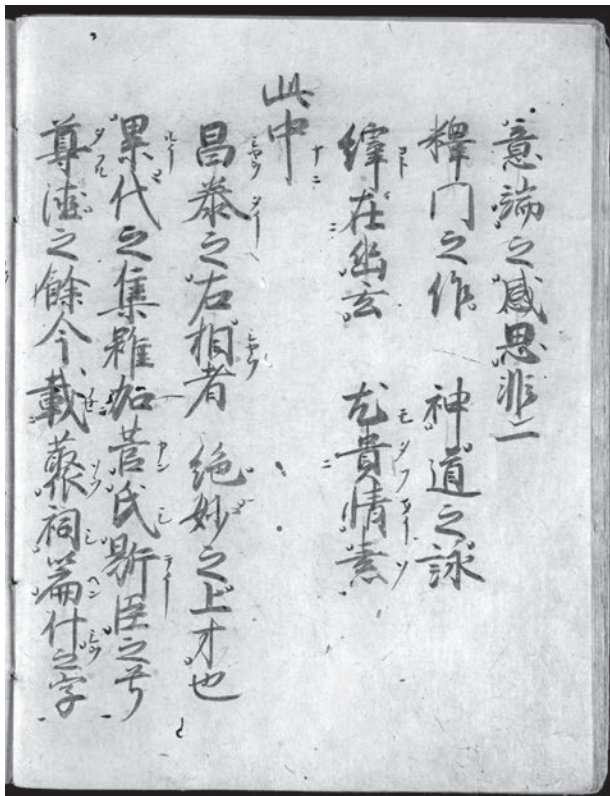 意端之感思非二
釋门之作　神道之詠
縡在幽玄　尤貴情素
此中
昌泰之右相者　絶妙之上才也
累代之集雖加菅氏鼎臣之号
尊德之餘今載藂祠篇什之字